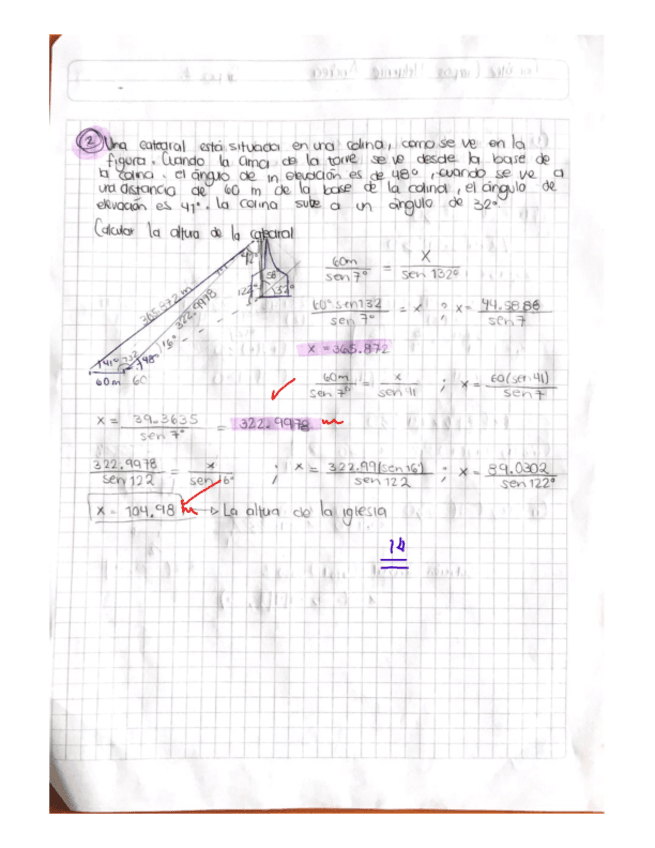 ② Una catedral está situada en una colina, como se ve en la
figura. Cuando la cima de la torre se ve desde la base de
la colina, el ángulo de in elevación es de 48°, cuando se ve a
una distancia de 60 m de la base de la colina, el ángulo de
elevación es 41°. la colina sube a un ángulo de 32°.
Calcular la altura de la catedral
365.872 m
322.9978
122°
58
32°
41°
132
48°
16°
60m
60
60m / sen 7° = X / sen 132°
60° sen132 / sen 7° = x ; x = 44.5886 / sen 7
x = 365.872
60m / sen 7° = x / sen 41 ; x = 60(sen 41) / sen 7
x = 39.3635 / sen 7° = 322.9978 m
322.9978 / sen 122 = x / sen 16° ; x = 322.99(sen 16) / sen 122 ; x = 89.0302 / sen 122°
x = 104.98 m → La altura de la iglesia